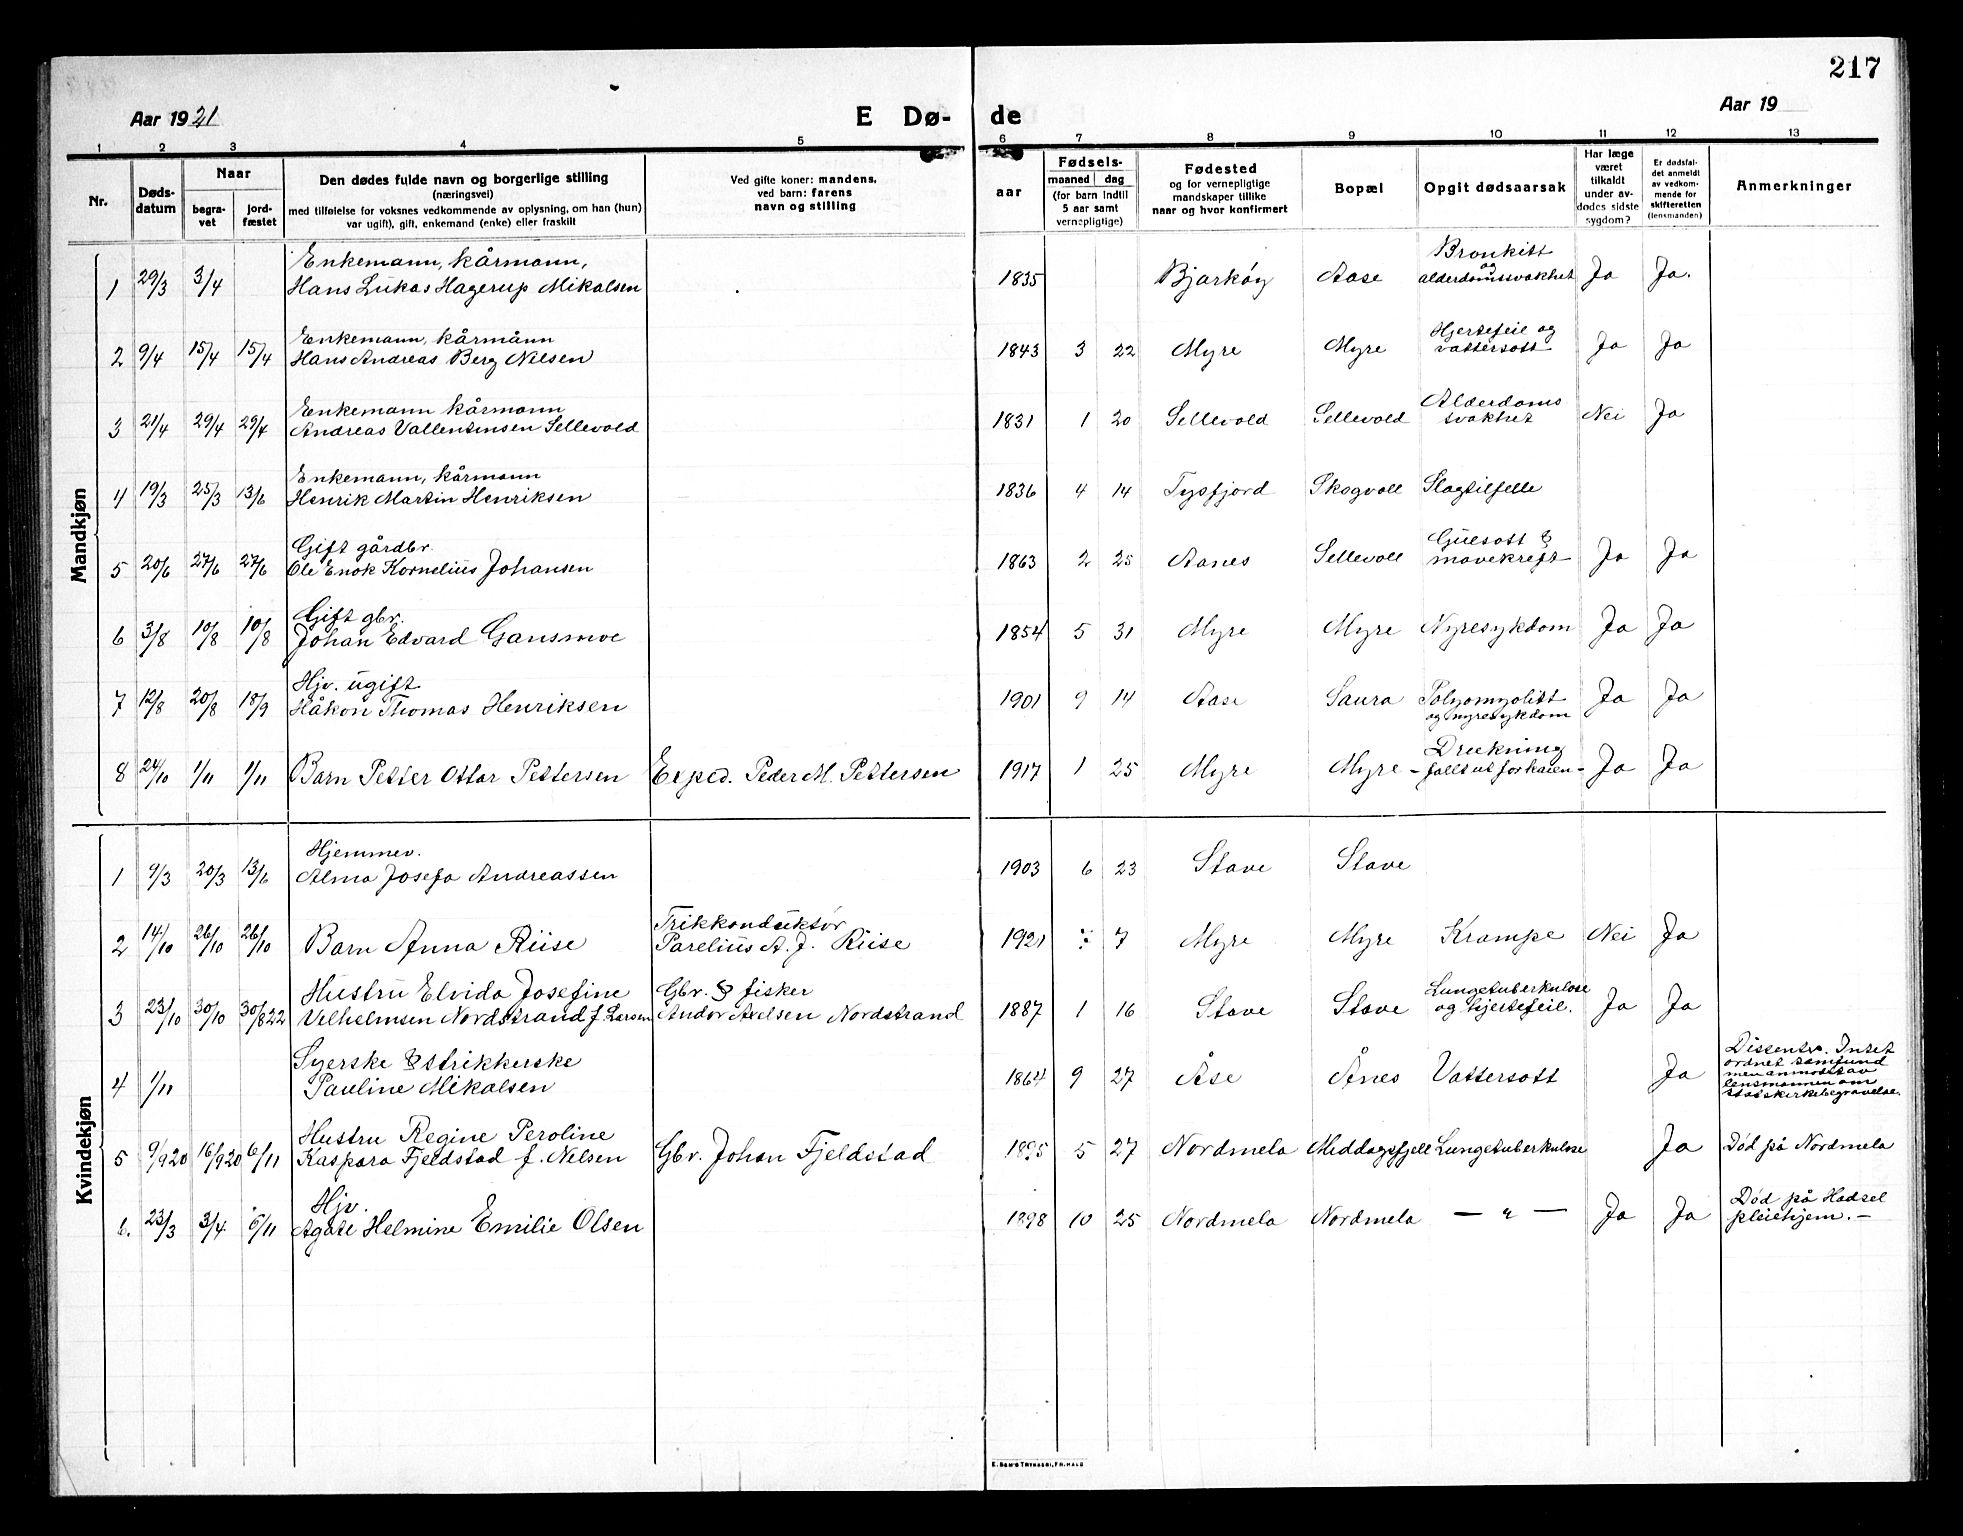 217
Aar 1921
E Dø- de
Aar 19
1 2 3 4 5 6 7 8 9 10 11 12 13
Nr.
Døds-
datum
Naar
begra-
vet
jord-
fæstet
Den dødes fulde navn og borgerlige stilling
(næringsvei)
med tilføielse for voksnes vedkommende av oplysning, om han (hun)
var ugift), gift, enkemand (enke) eller fraskilt
Ved gifte koner: mandens,
ved barn: farens
navn og stilling
aar
Fødsels-
maaned dag
(for barn indtil
5 aar samt
vernepligtige)
Fødested
og for vernepligtige
mandskaper tillike
naar og hvor konfirmert
Bopæl
Opgit dødsaarsak
Har læge
været
tilkaldt
under av-
dødes sidste
sygdom?
Er dødsfal-
det anmeldt
av vedkom-
mende for
skifteretten
(lensmanden)
Anmerkninger
Mandkjøn
Enkemann, kårmann,
1 29/3 3/4 Hans Lukas Hagerup Mikalsen 1835 Bjarkøy Aase Bronkitt og alderdomssvakhet Ja Ja.
Enkemann, kårmann
2 9/4 15/4 15/4 Hans Andreas Berg Nilsen 1843 3 22 Myre Myre Hjertefeil og vattersott Ja Ja
Enkemann kårmann
3 21/4 29/4 29/4 Andreas Vallentinsen Sellevold 1831 1 20 Sellevold Sellevold Alderdoms svakhet Nei Ja
Enkemann, kårmann
4 19/3 25/3 13/6 Henrik Martin Henriksen 1836 4 14 Tysfjord Skogvoll Slagtilfelle
Gift gårdbr.
5 20/6 27/6 27/6 Ole Enok Kornelius Johansen 1863 2 25 Aanes Sellevoll Gulsott & mavekreft Ja Ja
Gift gbr.
6 3/8 10/8 10/8 Johan Edvard Gansmoe 1854 5 31 Myre Myre Nyresykdom Ja Ja
Hjv. ugift
7 12/8 20/8 18/9 Håkon Thomas Henriksen 1901 9 14 Aase Saura Polyomyolitt og nyresykdom Ja Ja
8 24/10 1/11 1/11 Barn Petter Ottar Pettersen Exped. Peder M. Pettersen 1917 1 25 Myre Myre Drukning - fallt ut for kaien - Ja Ja
Kvindekjøn
Hjemmev.
1 9/3 20/3 13/6 Alma Josefa Andreassen 1903 6 23 Stave Stave
Trikkonduktør
2 14/10 26/10 26/10 Barn Anna Riise Parelius A. J. Riise 1921 7 Myre Myre Krampe Nei Ja
Hustru Elvida Josefine Gbr. & fisker
3 23/10 30/10 30/8 22 Vilhelmsen Nordstrand f. Larsen Andor Axelsen Nordstrand 1887 1 16 Stave Stave Lungetuberkulose og hjertefeil. Ja Ja
Syerske & strikkerske
4 1/11 Pauline Mikalsen 1864 9 27 Åse Ånes Vattersott Ja Dissenter. Intet
ordnet samfund
men anmodet av
lensmannen om
statskirkebegravelse.
Hustru Regine Peroline
5 9/9 20 16/9 20 6/11 Kaspara Fjeldstad f. Nilsen Gbr. Johan Fjeldstad 1895 5 27 Nordmela Middagsfjell Lungetuberkulose Ja Død på Nordmela
Hjv.
6. 23/3 3/4 6/11 Agate Helmine Emilie Olsen 1898 10 25 Nordmela Nordmela — " — Ja Ja Død på Hadsel
pleiehjem. —
E. SEM'S TRYKKERI, FR.HALD